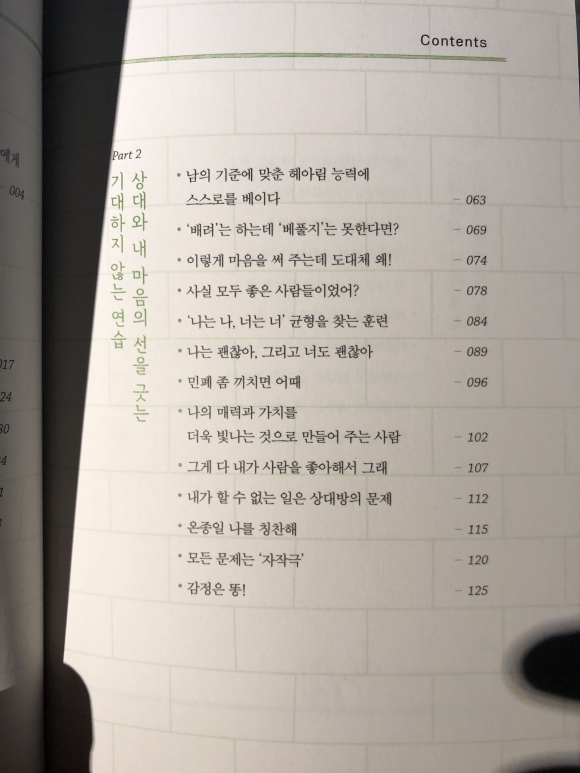 Contents
에게
004
017
24
Part 2
상대와 내 마음의 선을 긋는
기대하지 않는 연습
• 남의 기준에 맞춘 헤아림 능력에
스스로를 베이다 – 063
• ‘배려’는 하는데 ‘베풀지’는 못한다면? – 069
• 이렇게 마음을 써 주는데 도대체 왜! – 074
• 사실 모두 좋은 사람들이었어? – 078
• ‘나는 나, 너는 너’ 균형을 찾는 훈련 – 084
• 나는 괜찮아, 그리고 너도 괜찮아 – 089
• 민폐 좀 끼치면 어때 – 096
• 나의 매력과 가치를
더욱 빛나는 것으로 만들어 주는 사람 – 102
• 그게 다 내가 사람을 좋아해서 그래 – 107
• 내가 할 수 없는 일은 상대방의 문제 – 112
• 온종일 나를 칭찬해 – 115
• 모든 문제는 ‘자작극’ – 120
• 감정은 똥! – 125